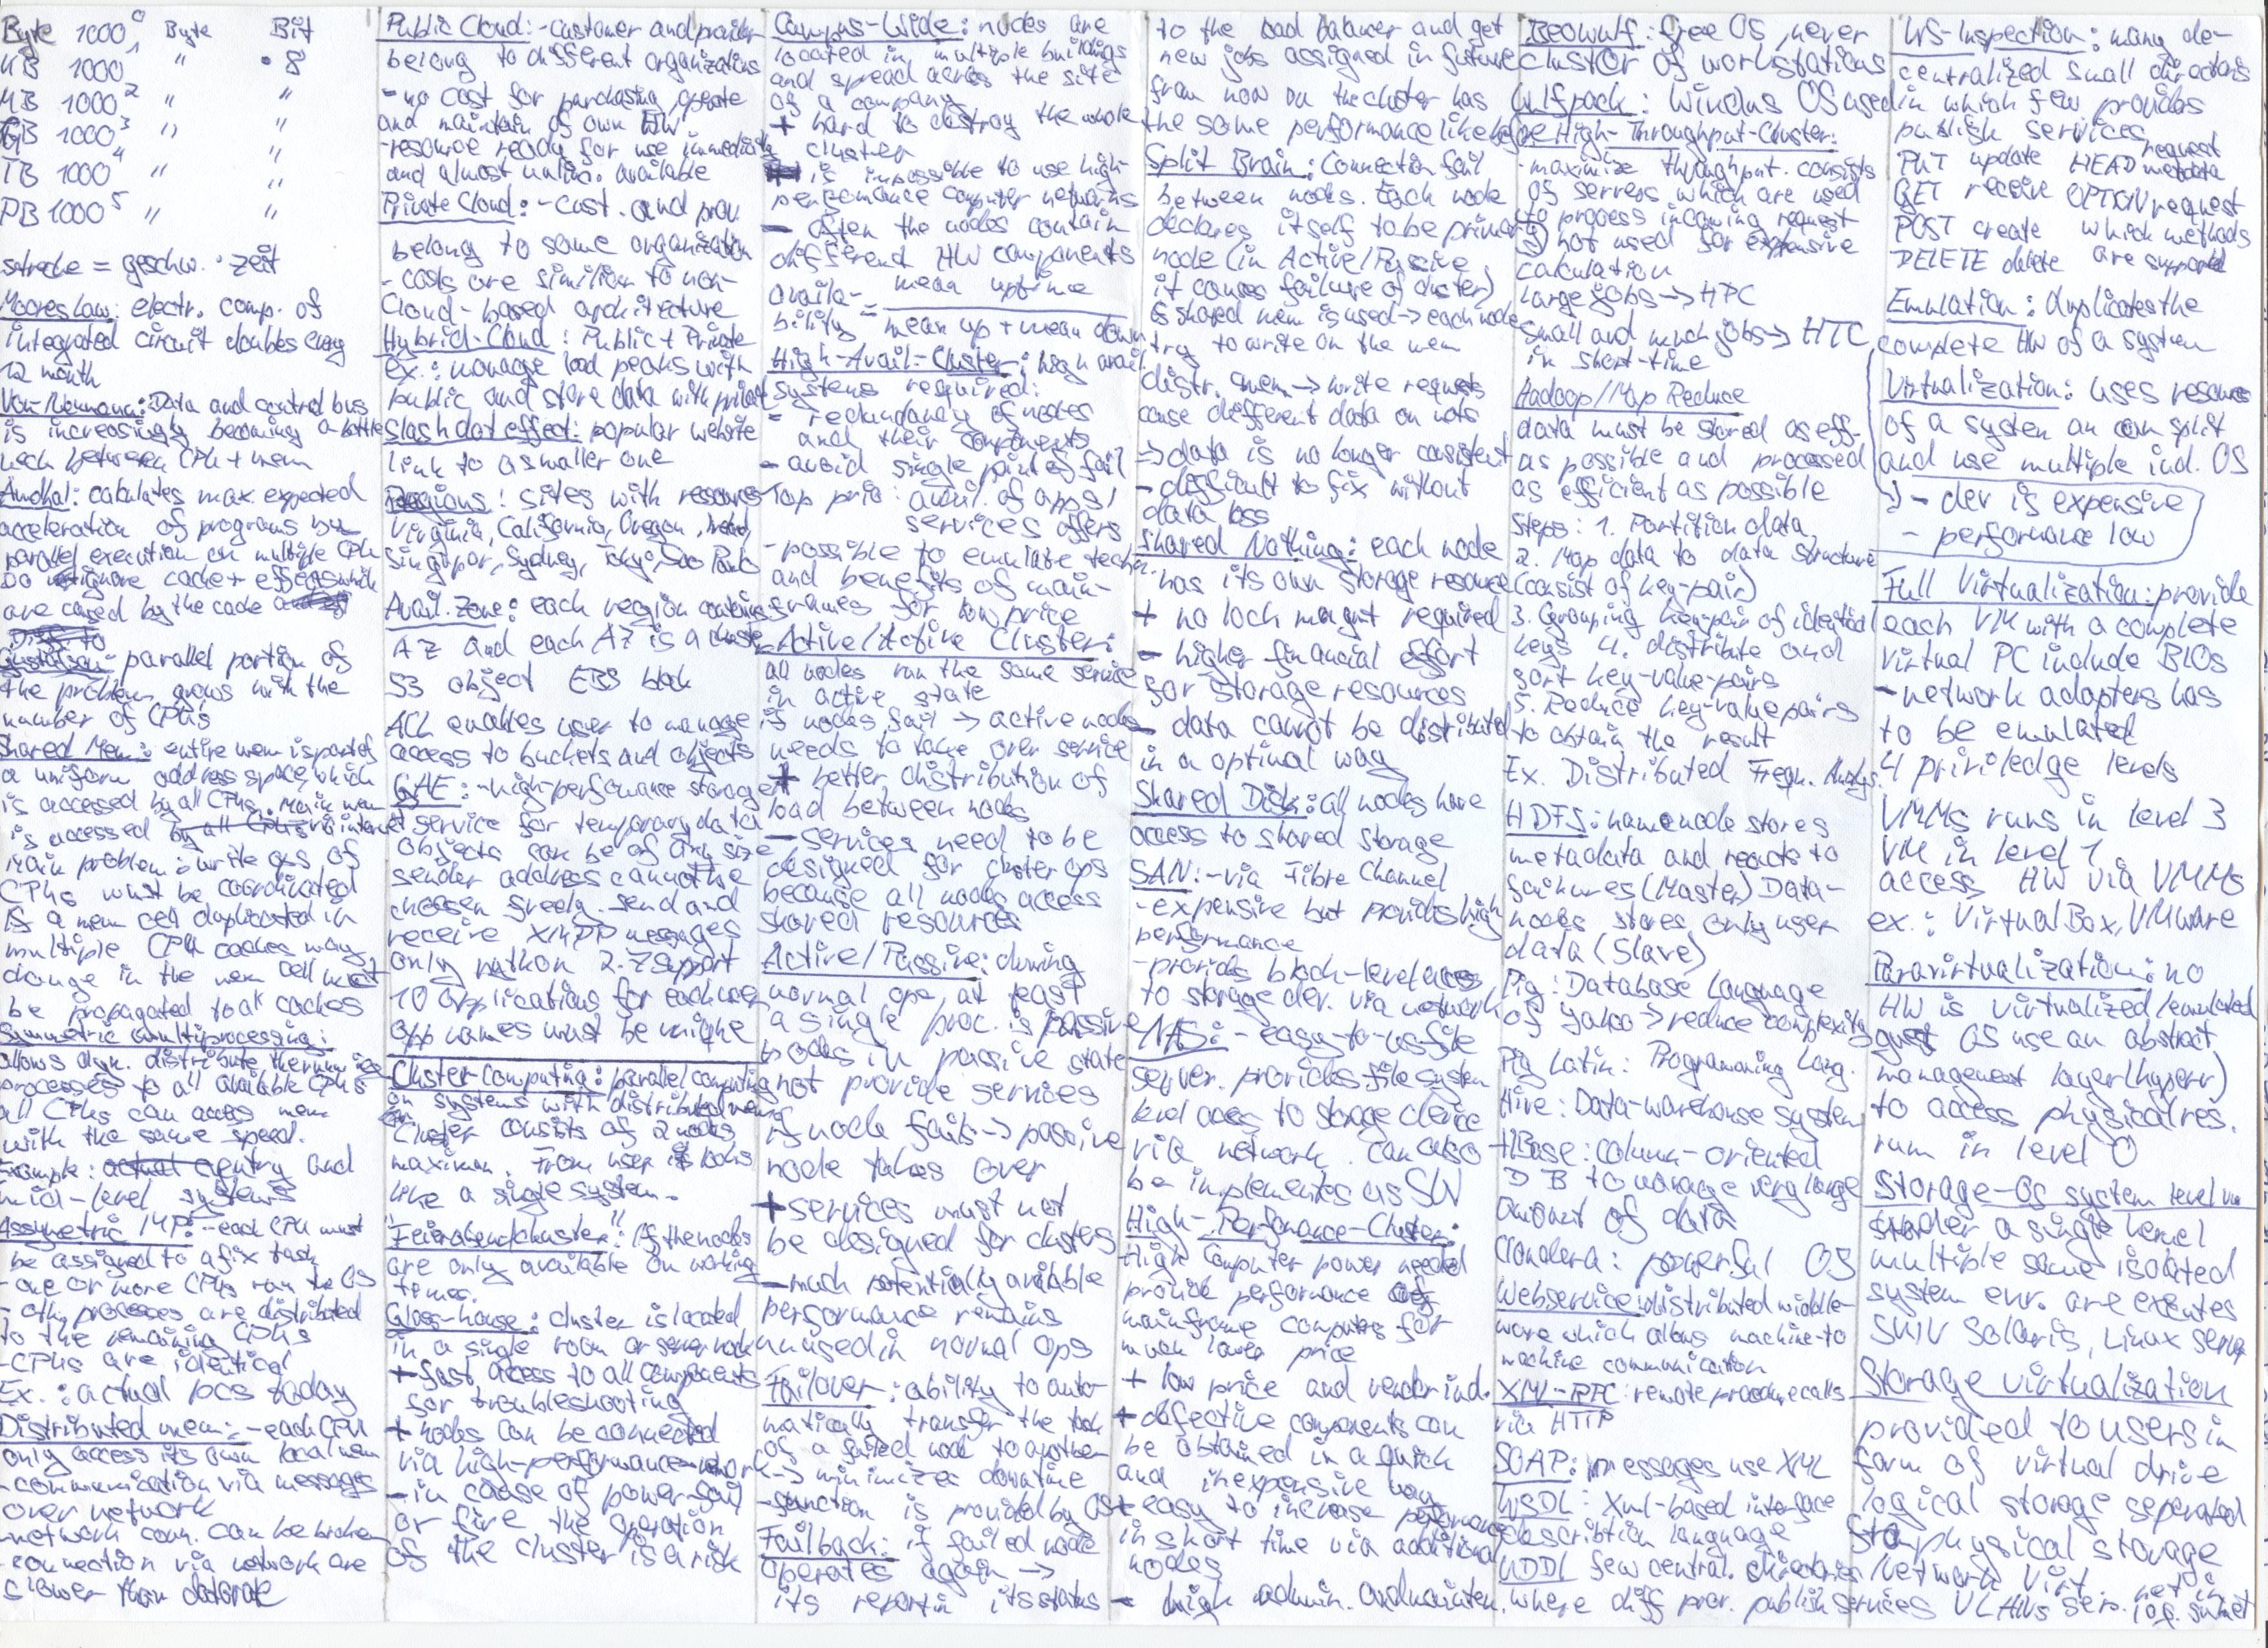 Byte 1000⁰ Byte Bit
KB 1000¹ " · 8
MB 1000² " "
GB 1000³ " "
TB 1000⁴ " "
PB 1000⁵ " "
strecke = geschw. · zeit
Moores Law: electr. comp. of
integrated circuit doubles every
12 month
Von-Neumann: Data and control bus
is increasingly becoming a bottle
neck between CPU + mem
Amdhal: calculates max. expected
acceleration of programs by
parallel execution on multiple CPUs
Do ignore cache + effects which
are caused by the cache
Gustafson: parallel portion of
the problem grows with the
number of CPUs
Shared Mem: entire mem is part of
a uniform address space, which
is accessed by all CPUs. Main mem
is accessed by all CPUs via interconnect
Main problem: write ops of
CPUs must be coordinated
If a mem cell duplicated in
multiple CPU caches may
change in the mem cell must
be propagated to all caches
Symmetric multiprocessing:
allows dyn. distribute the running
processes to all available CPUs
all CPUs can access mem
with the same speed.
Example: actual entry and
mid-level systems
Assymetric MP: - each CPU must
be assigned to a fix task
- one or more CPUs run the OS
- oth. processes are distributed
to the remaining CPUs
- CPUs are identical
Ex.: actual pcs today
Distributed mem: - each CPU
only access its own local mem
- communication via messages
over network
- network conn. can be broken
- connection via network are
slower than datarate
Public Cloud: - customer and provider
belong to different organizations
- no cost for purchasing, operate
and maintain of own HW
- resource ready for use immediate
and almost unlim. available
Private Cloud: - cust. and prov.
belong to same organization
- costs are similiar to non-
Cloud-based architecture
Hybrid-Cloud: Public + Private
ex.: manage load peaks with
public and store data with privat
Slashdot effect: popular website
link to a smaller one
Regions: sites with resources
Virginia, California, Oregon, Irland,
Singapor, Sydney, Tokyo, Sao Paulo
Avail. Zone: each region contains
AZ and each AZ is a cluster
S3 object EBS block
ACL enables user to manage
access to buckets and objects
GAE: - high-performance storage
service for temporary data
objects can be of any size
sender address cannot be
choosen freely. send and
receive XMPP messages
only python 2.7 Support
10 applications for each user
app names must be unique
Cluster-Computing: parallel computing
on systems with distributed mem
Cluster consists of 2 nodes
maximum. From user it looks
like a single system.
"Feierabendcluster": If the nodes
are only available on working
times.
Glass-house: cluster is located
in a single room or server rack
+ fast access to all components
for troubleshooting
+ nodes can be connected
via high-performance-network
- in cause of power-fail
or fire the operation
of the cluster is a risk
Campus-Wide: nodes are
located in multiple buildings
and spread across the site
of a company
+ hard to destroy the whole
cluster
- is impossible to use high-
performance computer networks
- Often the nodes contain
different HW components
availa-bility = mean uptime
mean up + mean down
High-Avail-Cluster: high avail.
systems required:
- redundancy of nodes
and their components
- avoid single point of fail
Top prio: avail. of apps /
services offers
- possible to emulate tech
and benefits of main-
frames for low price
Active/Active Cluster:
all nodes run the same service
in active state
if nodes fail -> active nodes
needs to take over service
+ better distribution of
load between nodes
- services need to be
designed for cluster ops
because all nodes access
shared resources
Active/Passive: during
normal ops, at least
a single proc. is passive
nodes in passive state
not provide services
if node fails -> passive
node takes over
+ services must not
be designed for clusters
- much potentially available
performance remains
unused in normal ops
Failover: ability to auto-
matically transfer the task
of a failed node to another
-> minimizes downtime
- function is provided by OS
Failback: if failed node
operates again ->
its reportin its status
to the load balancer and get
new jobs assigned in future
from now on the cluster has
the same performance like before
Split Brain: Connection fail
between nodes. Each node
declares itself to be primary
node (in Active/Passive
it causes failure of cluster)
If shared mem is used -> each node
try to write on the mem
distr. mem -> write requests
cause different data on nods
=> data is no longer consistent
- difficult to fix without
data loss
Shared Nothing: each node
has its own storage resource
+ no lock magnt required
- higher financial effort
for storage resources
- data cannot be distributed
in a optimal way
Shared Disk: all nodes have
access to shared storage
SAN: - via Fibre Channel
- expensive but provides high
performance
- provids block-level access
to storage dev. via network
NAS: - easy-to-use-file
server. provides file system
level access to storage device
via network. can also
be implementes as SW
High-Perfomance-Cluster:
High Computer power needed
provide performance of
mainframe computers for
much lower price
+ low price and vendor ind.
+ defective components can
be obtained in a quick
and inexpensive way
+ easy to increase performance
in short time via additional
nodes
- high admin. and mainten.
Beowulf: free OS, never
cluster of workstations
Wulfpack: Windows OS used
High-Throughput-Cluster:
- maximize throughput. consists
of servers which are used
to process incoming request
not used for expensive
calculation
Large jobs -> HPC
small and much jobs -> HTC
in short-time
Hadoop/Map Reduce
data must be stored as eff.
as possible and processed
as efficient as possible
Steps: 1. Partition data,
2. Map data to data structure
(consist of key-pair)
3. Grouping key-pair of identical
keys 4. distribute and
sort key-value-pairs
5. Reduce key-value pairs
to obtain the result
Ex. Distributed Frequ. Analys.
HDFS: namenode stores
metadata and reacts to
failures (Master) Data-
nodes stores only user
data (Slave)
Pig: Database Language
of yahoo -> reduce complexity
Pig Latin: Programming Lang.
Hive: Data-warehouse system
HBase: column-oriented
DB to manage very large
amount of data
Cloudera: powerful OS
Webservice: distributed middle-
ware which allows machine-to
machine communication
XML-RPC: remote procedure calls
via HTTP
SOAP: messages use XML
WSDL: Xml-based interface
describtion language
UDDI few central. directories
where diff prov. publish services
WS-Inspection: many de-
centralized small directories
in which few provides
publish services
PUT update HEAD request metadata
GET receive OPTION request
POST create which methods
DELETE delete are supported
Emulation: duplicates the
complete HW of a system
Virtualization: uses resources
of a system an can split
and use multiple ind. OS
- dev is expensive
- performance low
Full Virtualization: provide
each VM with a complete
virtual PC include BIOs
- network adapters has
to be emulated
4 priviledge levels
VMMs runs in level 3
VM in level 1
access HW via VMMs
ex.: VirtualBox, VMWare
Paravirtualization: no
HW is virtualized/emulated
guest OS use an abstract
management layer (hyperv)
to access physical res.
run in level 0
Storage-Os system level
under a single kernel
multiple same isolated
system env. are executes
SUN Solaris, Linux Server
Storage virtualization
provided to users in
form of virtual drive
logical storage seperated
physical storage
Network Virt.